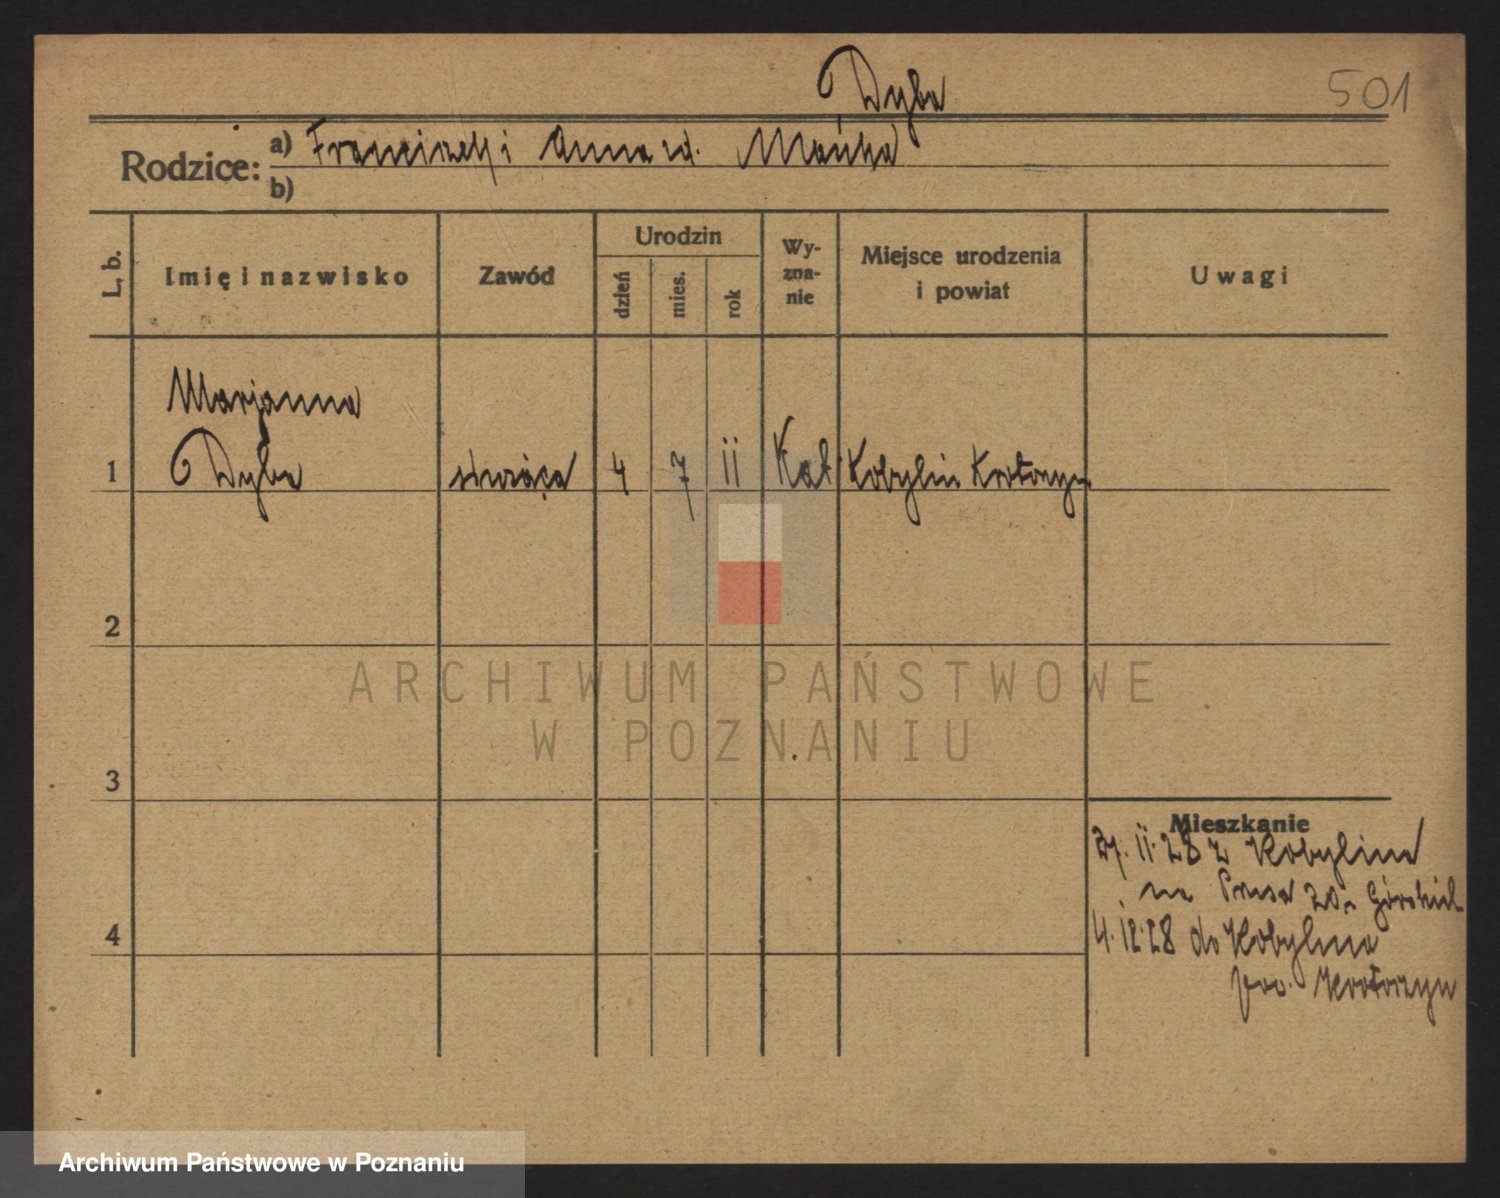 Dyba
501
Rodzice: a) Franciszek i Anna z d. Mańka
b)
L. b.
Imię i nazwisko
Zawód
Urodzin
dzień
mies.
rok
Wy-
zna-
nie
Miejsce urodzenia
i powiat
Uwagi
Marjanna
1 Dyba służąca 4 7 11 Kat Kobylin Krotoszyn
2
ARCHIWUM PAŃSTWOWE
W POZNANIU
3
Mieszkanie
11.28 z Kobylina
na 20. Górskich
4 4.12.28 do Kobylina
pow. Krotoszyn
Archiwum Państwowe w Poznaniu